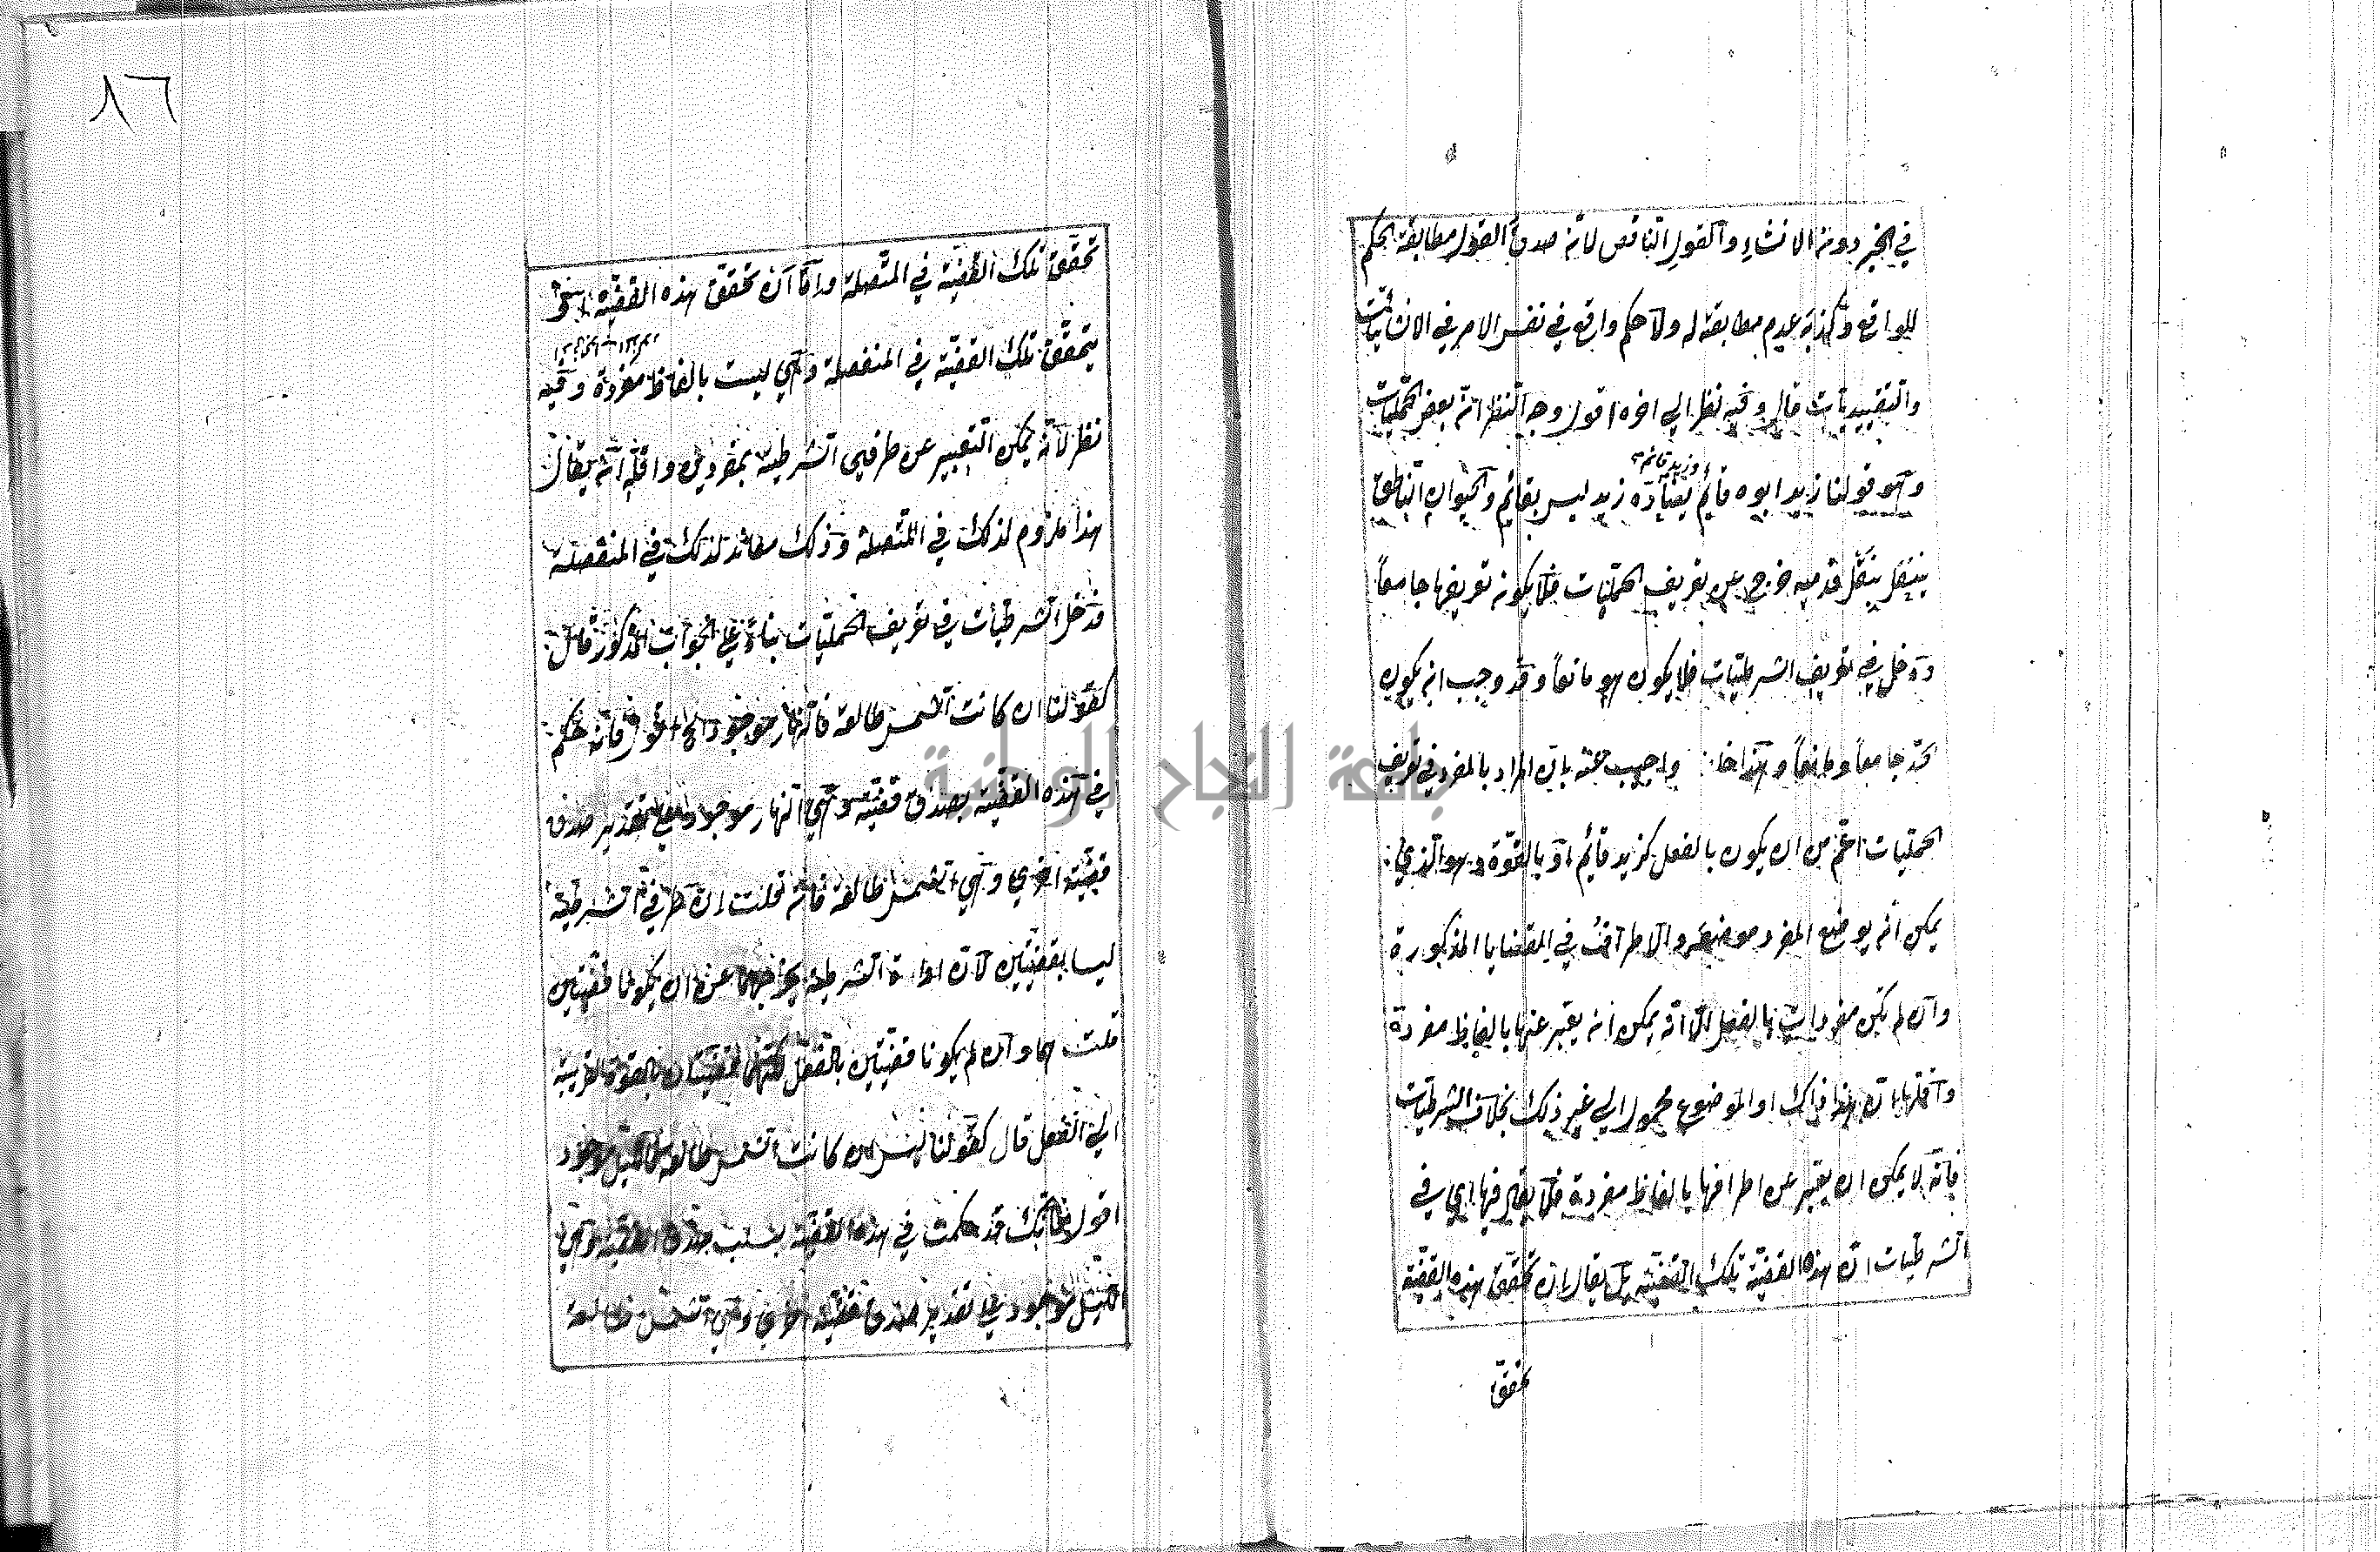 في الخبر دون الانشاء والقول الناقص لان صدق القول مطابقة الحكم
للواقع وكذبه عدم مطابقته له ولا حكم واقع في نفس الامر في الانشائيات
والتقييديات قال وفيه نظر الى اخره اقول وجه النظر ان بعض الحمليات
وهو قولنا زيد ابوه قائم وزيد قائم يضاده زيد ليس بقائم والحيوان الناطق
ينتقل بنقل قدميه خرج عن تعريف الحمليات فلا يكون تعريفها جامعا
ودخل في تعريف الشرطيات فلا يكون هو مانعا وقد وجب ان يكون
الحد جامعا ومانعا وهذا خا واجيب عنه بان المراد بالمفرد في تعريف
الحمليات اعم من ان يكون بالفعل كزيد قائم او بالقوة وهو الذي
يمكن ان يوضع المفرد موضعه والاطراف في القضايا المذكورة
وان لم تكن مفردات بالفعل الا انه يمكن ان يعبر عنها بالفاظ مفردة
واقلها ان هذا ذاك او الموضوع محمول الى غير ذلك بخلاف الشرطيات
فانه لا يمكن ان يعبر عن اطرافها بالفاظ مفردة فلا يقال فيها اي في
الشرطيات ان هذه القضية تلك القضية بل يقال ان تحقق هذه القضية
تحقق
٨٦
تحقق تلك القضية في المتصلة واما ان تحقق هذه القضية او
يتحقق تلك القضية في المنفصلة وهي ليست بالفاظ مفردة وفيه
نظر لانه يمكن التعبير عن طرفي الشرطية بمفردين واقله انه يقال
هذا ملزوم لذلك في المتصلة وذلك معاند لذلك في المنفصلة
فدخل الشرطيات في تعريف الحمليات بناء على الجواب المذكور قال
كقولنا ان كانت الشمس طالعة فالنهار موجود الخ اقول فانه حكم
في هذه القضية بصدق قضية وهي النهار موجود على تقدير صدق
قضية اخرى وهي الشمس طالعة فان قلت ان طرفي الشرطية
ليسا بقضيتين لان اداة الشرطية يخرجهما عن ان يكونا قضيتين
قلت هما وان لم يكونا قضيتين بالفعل لكنهما قضيتان بالقوة القريبة
الى الفعل قال كقولنا ليس ان كانت الشمس طالعة فالليل موجود
اقول فانك قد حكمت في هذه القضية بسلب صدق القضية وهي
الليل موجود على تقدير صدق قضية اخرى وهي الشمس طالعة
جامعة النجاح الوطنية